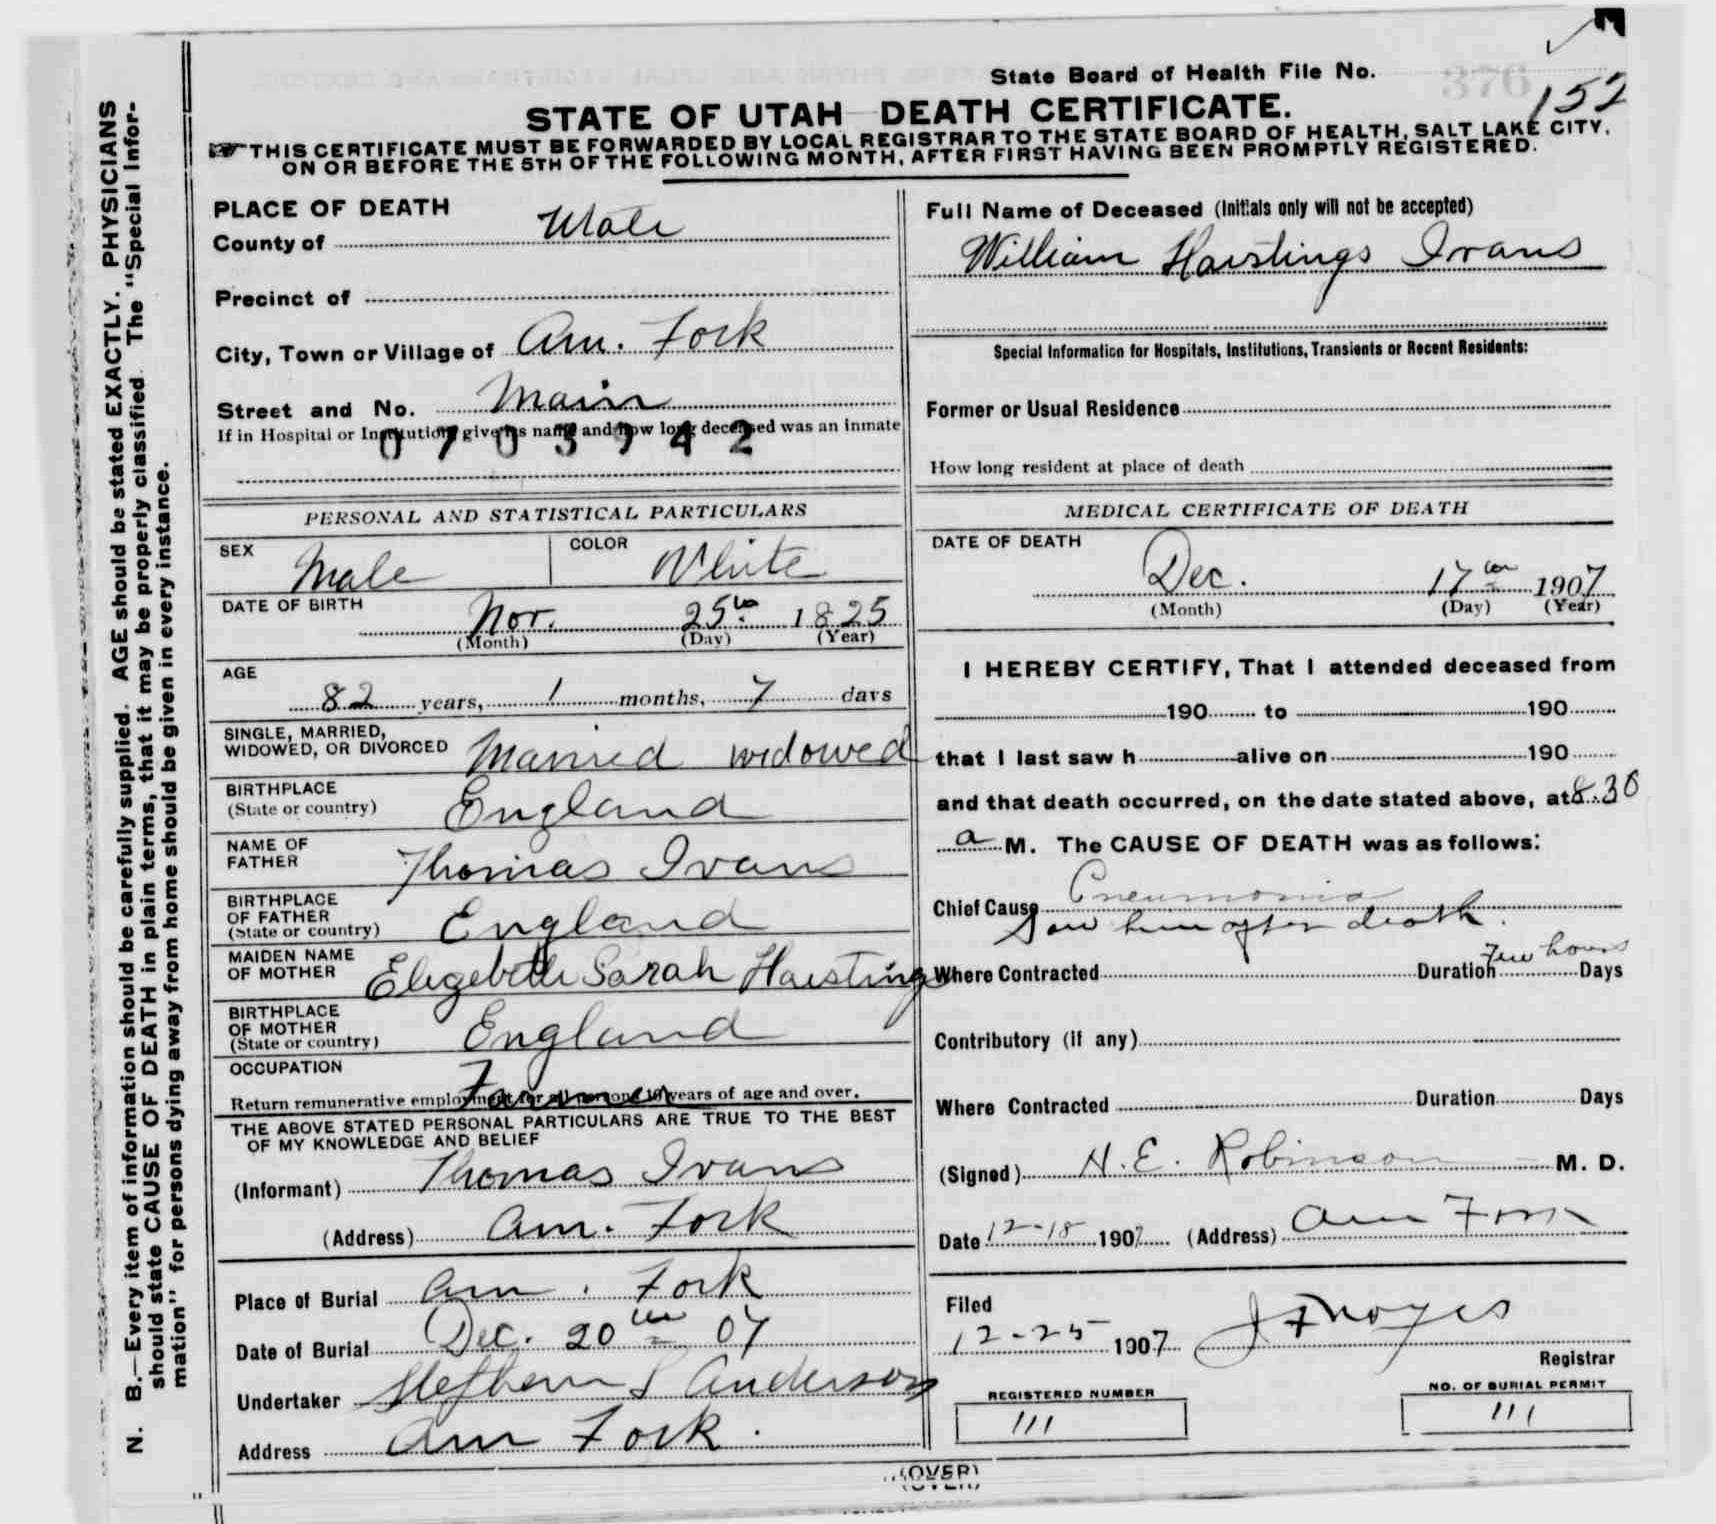 State Board of Health File No. 376 152
STATE OF UTAH DEATH CERTIFICATE.
THIS CERTIFICATE MUST BE FORWARDED BY LOCAL REGISTRAR TO THE STATE BOARD OF HEALTH, SALT LAKE CITY,
ON OR BEFORE THE 5TH OF THE FOLLOWING MONTH, AFTER FIRST HAVING BEEN PROMPTLY REGISTERED.
N. B.—Every item of information should be carefully supplied. AGE should be stated EXACTLY. PHYSICIANS
should state CAUSE OF DEATH in plain terms, that it may be properly classified. The "Special Infor-
mation" for persons dying away from home should be given in every instance.
PLACE OF DEATH
County of Utah
Precinct of
City, Town or Village of Am. Fork
Street and No. Main
If in Hospital or Institution, give its name and how long deceased was an inmate
0703942
PERSONAL AND STATISTICAL PARTICULARS
SEX Male COLOR White
DATE OF BIRTH Nov. 25th 1825
(Month) (Day) (Year)
AGE
82 years, 1 months, 7 days
SINGLE, MARRIED,
WIDOWED, OR DIVORCED Married widowed
BIRTHPLACE
(State or country) England
NAME OF
FATHER Thomas Ivans
BIRTHPLACE
OF FATHER
(State or country) England
MAIDEN NAME
OF MOTHER Elizebeth Sarah Haistings
BIRTHPLACE
OF MOTHER
(State or country) England
OCCUPATION
Farmer
Return remunerative employment for all persons 10 years of age and over.
THE ABOVE STATED PERSONAL PARTICULARS ARE TRUE TO THE BEST
OF MY KNOWLEDGE AND BELIEF
(Informant) Thomas Ivans
(Address) Am. Fork
Place of Burial Am. Fork
Date of Burial Dec. 20th 07
Undertaker Stephern L Anderson
Address Am Fork.
Full Name of Deceased (Initials only will not be accepted)
William Haistings Ivans
Special Information for Hospitals, Institutions, Transients or Recent Residents:
Former or Usual Residence
How long resident at place of death
MEDICAL CERTIFICATE OF DEATH
DATE OF DEATH
Dec. 17th 1907
(Month) (Day) (Year)
I HEREBY CERTIFY, That I attended deceased from
190 to 190
that I last saw h alive on 190
and that death occurred, on the date stated above, at 8.30
a M. The CAUSE OF DEATH was as follows:
Chief Cause Pneumonia
Saw him after death.
Where Contracted Duration Few hours Days
Contributory (if any)
Where Contracted Duration Days
(Signed) H. E. Robinson M. D.
Date 12-18 1907 (Address) Am Fork
Filed
12-25 1907 J F Noyes
Registrar
REGISTERED NUMBER
111
NO. OF BURIAL PERMIT
111
(OVER)